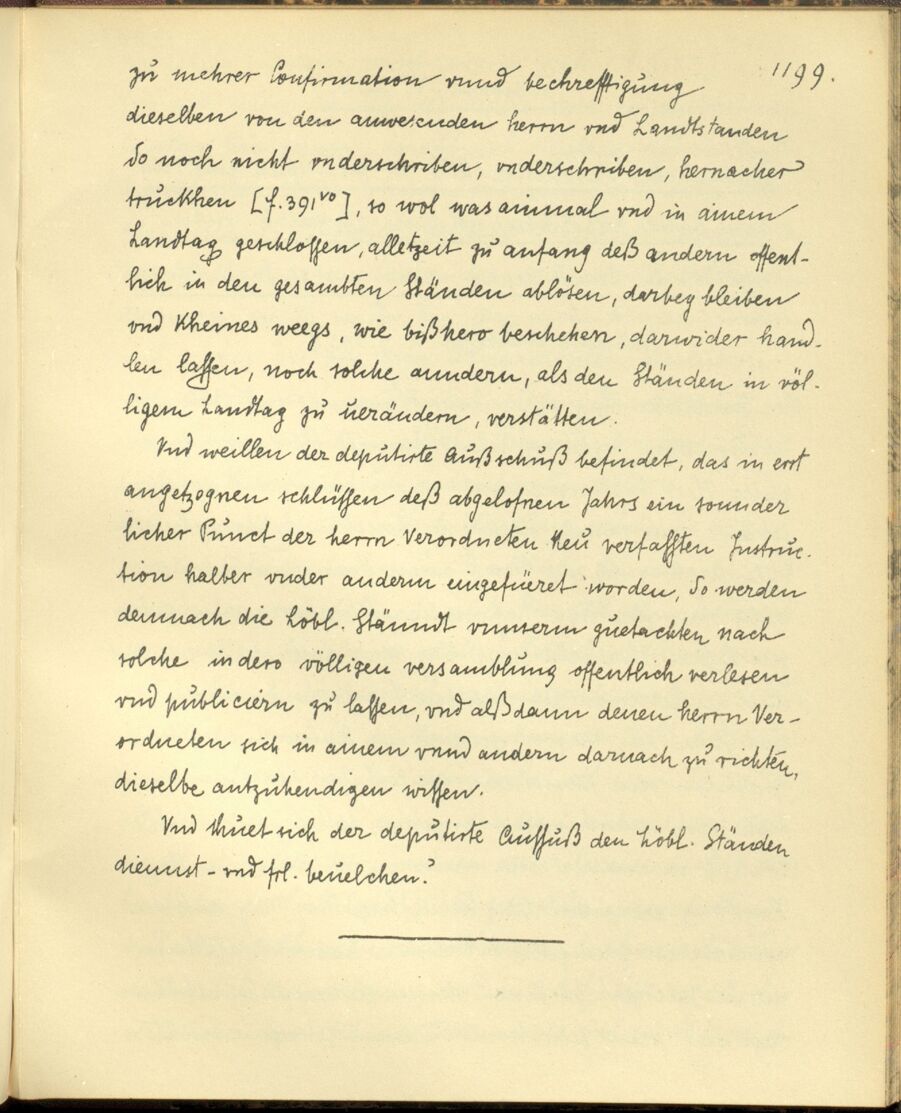 1199.
zu mehrer Confirmation vnnd bechrefftigung
dieselben von den anwesenden herrn vnd Landtstanden
So noch nicht vnderschriben, vnderschreiben, hernacher
truckhen [f. 391vo], so wol was ainmal vnd in ainem
Landtag geschlossen, alletzeit zu anfang deß andern offent-
lich in den gesambten Ständen ablösen, darbey bleiben
vnd Kheines weegs, wie bißhero beschehen, darwider hand-
len lassen, noch solche anndern, als den Ständen in völ-
ligem Landtag zu uerändern, verstätten.
Vnd weillen der deputirte Außschuß befindet, das in erst
angetzognen schlüssen deß abgelofnen Jahrs ein sounder
licher Punct der herrn Verordneten Neu verfassten Instruc-
tion halber vnder anderm eingefüeret worden, So werden
demnach die Löbl. Stänndt vnnserm guetachten nach
solche in dero völligen versamblung offentlich verlesen
vnd publiciern zu lassen, vnd alß dann denen herrn Ver-
ordneten sich in ainem vnnd andern darnach zu richten,
dieselbe antzuhendigen wissen.
Vnd thuet sich der deputirte Ausschuß den Löbl. Ständen
diennst- vnd frl. beuelchen.